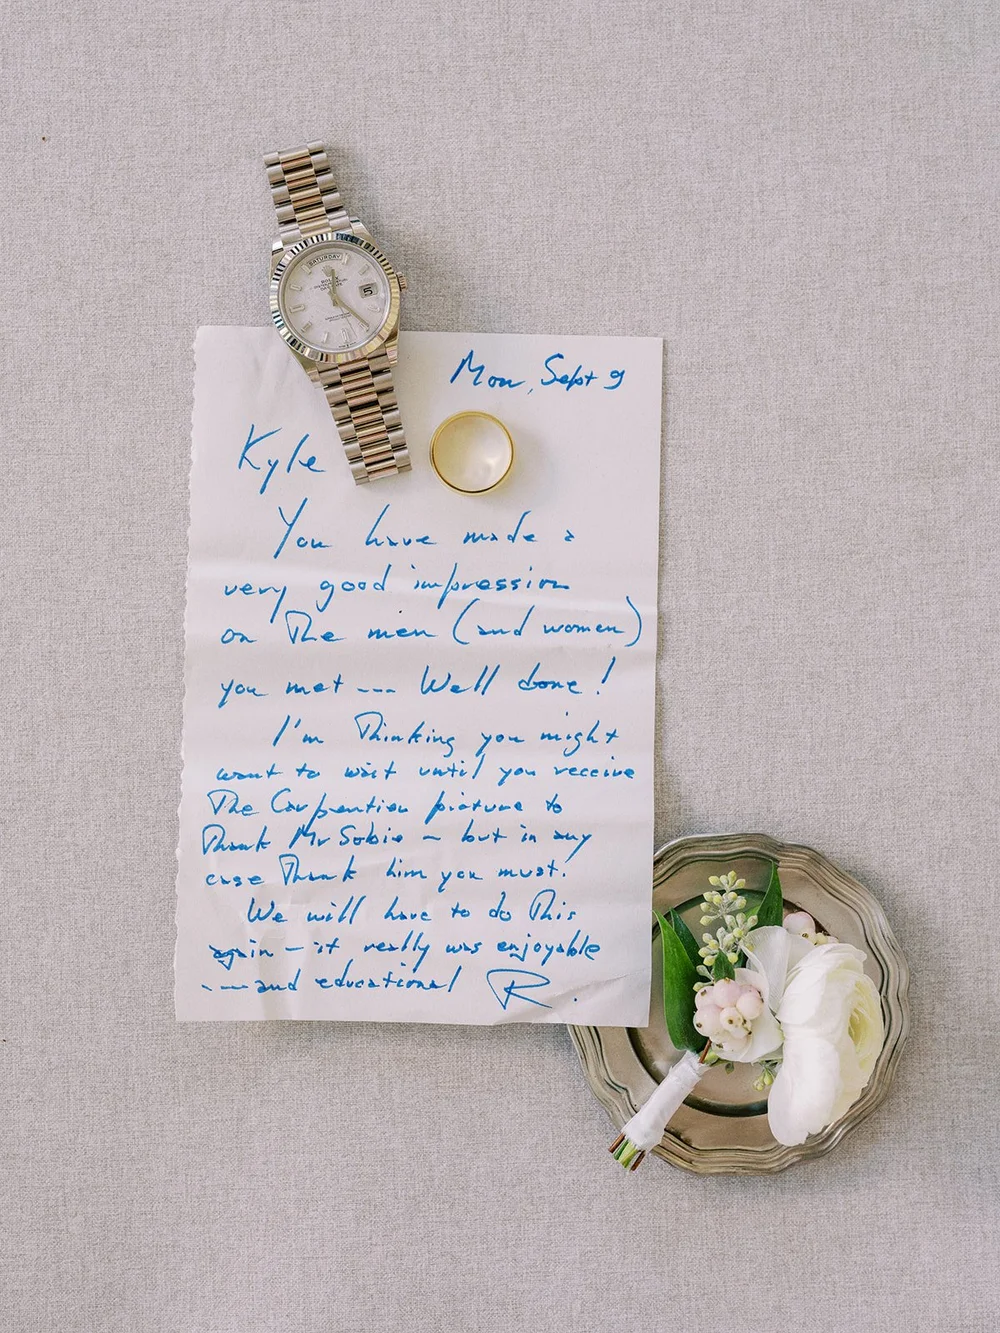 SATURDAY
ROLEX
5
Mon, Sept 9
Kyle
You have made a
very good impression
on The men (and women)
you met --- Well done!
I'm Thinking you might
want to wait until you receive
The picture to
Thank Mr Sobie – but in any
case Thank him you must.
We will have to do This
again – it really was enjoyable
--- and educational R.